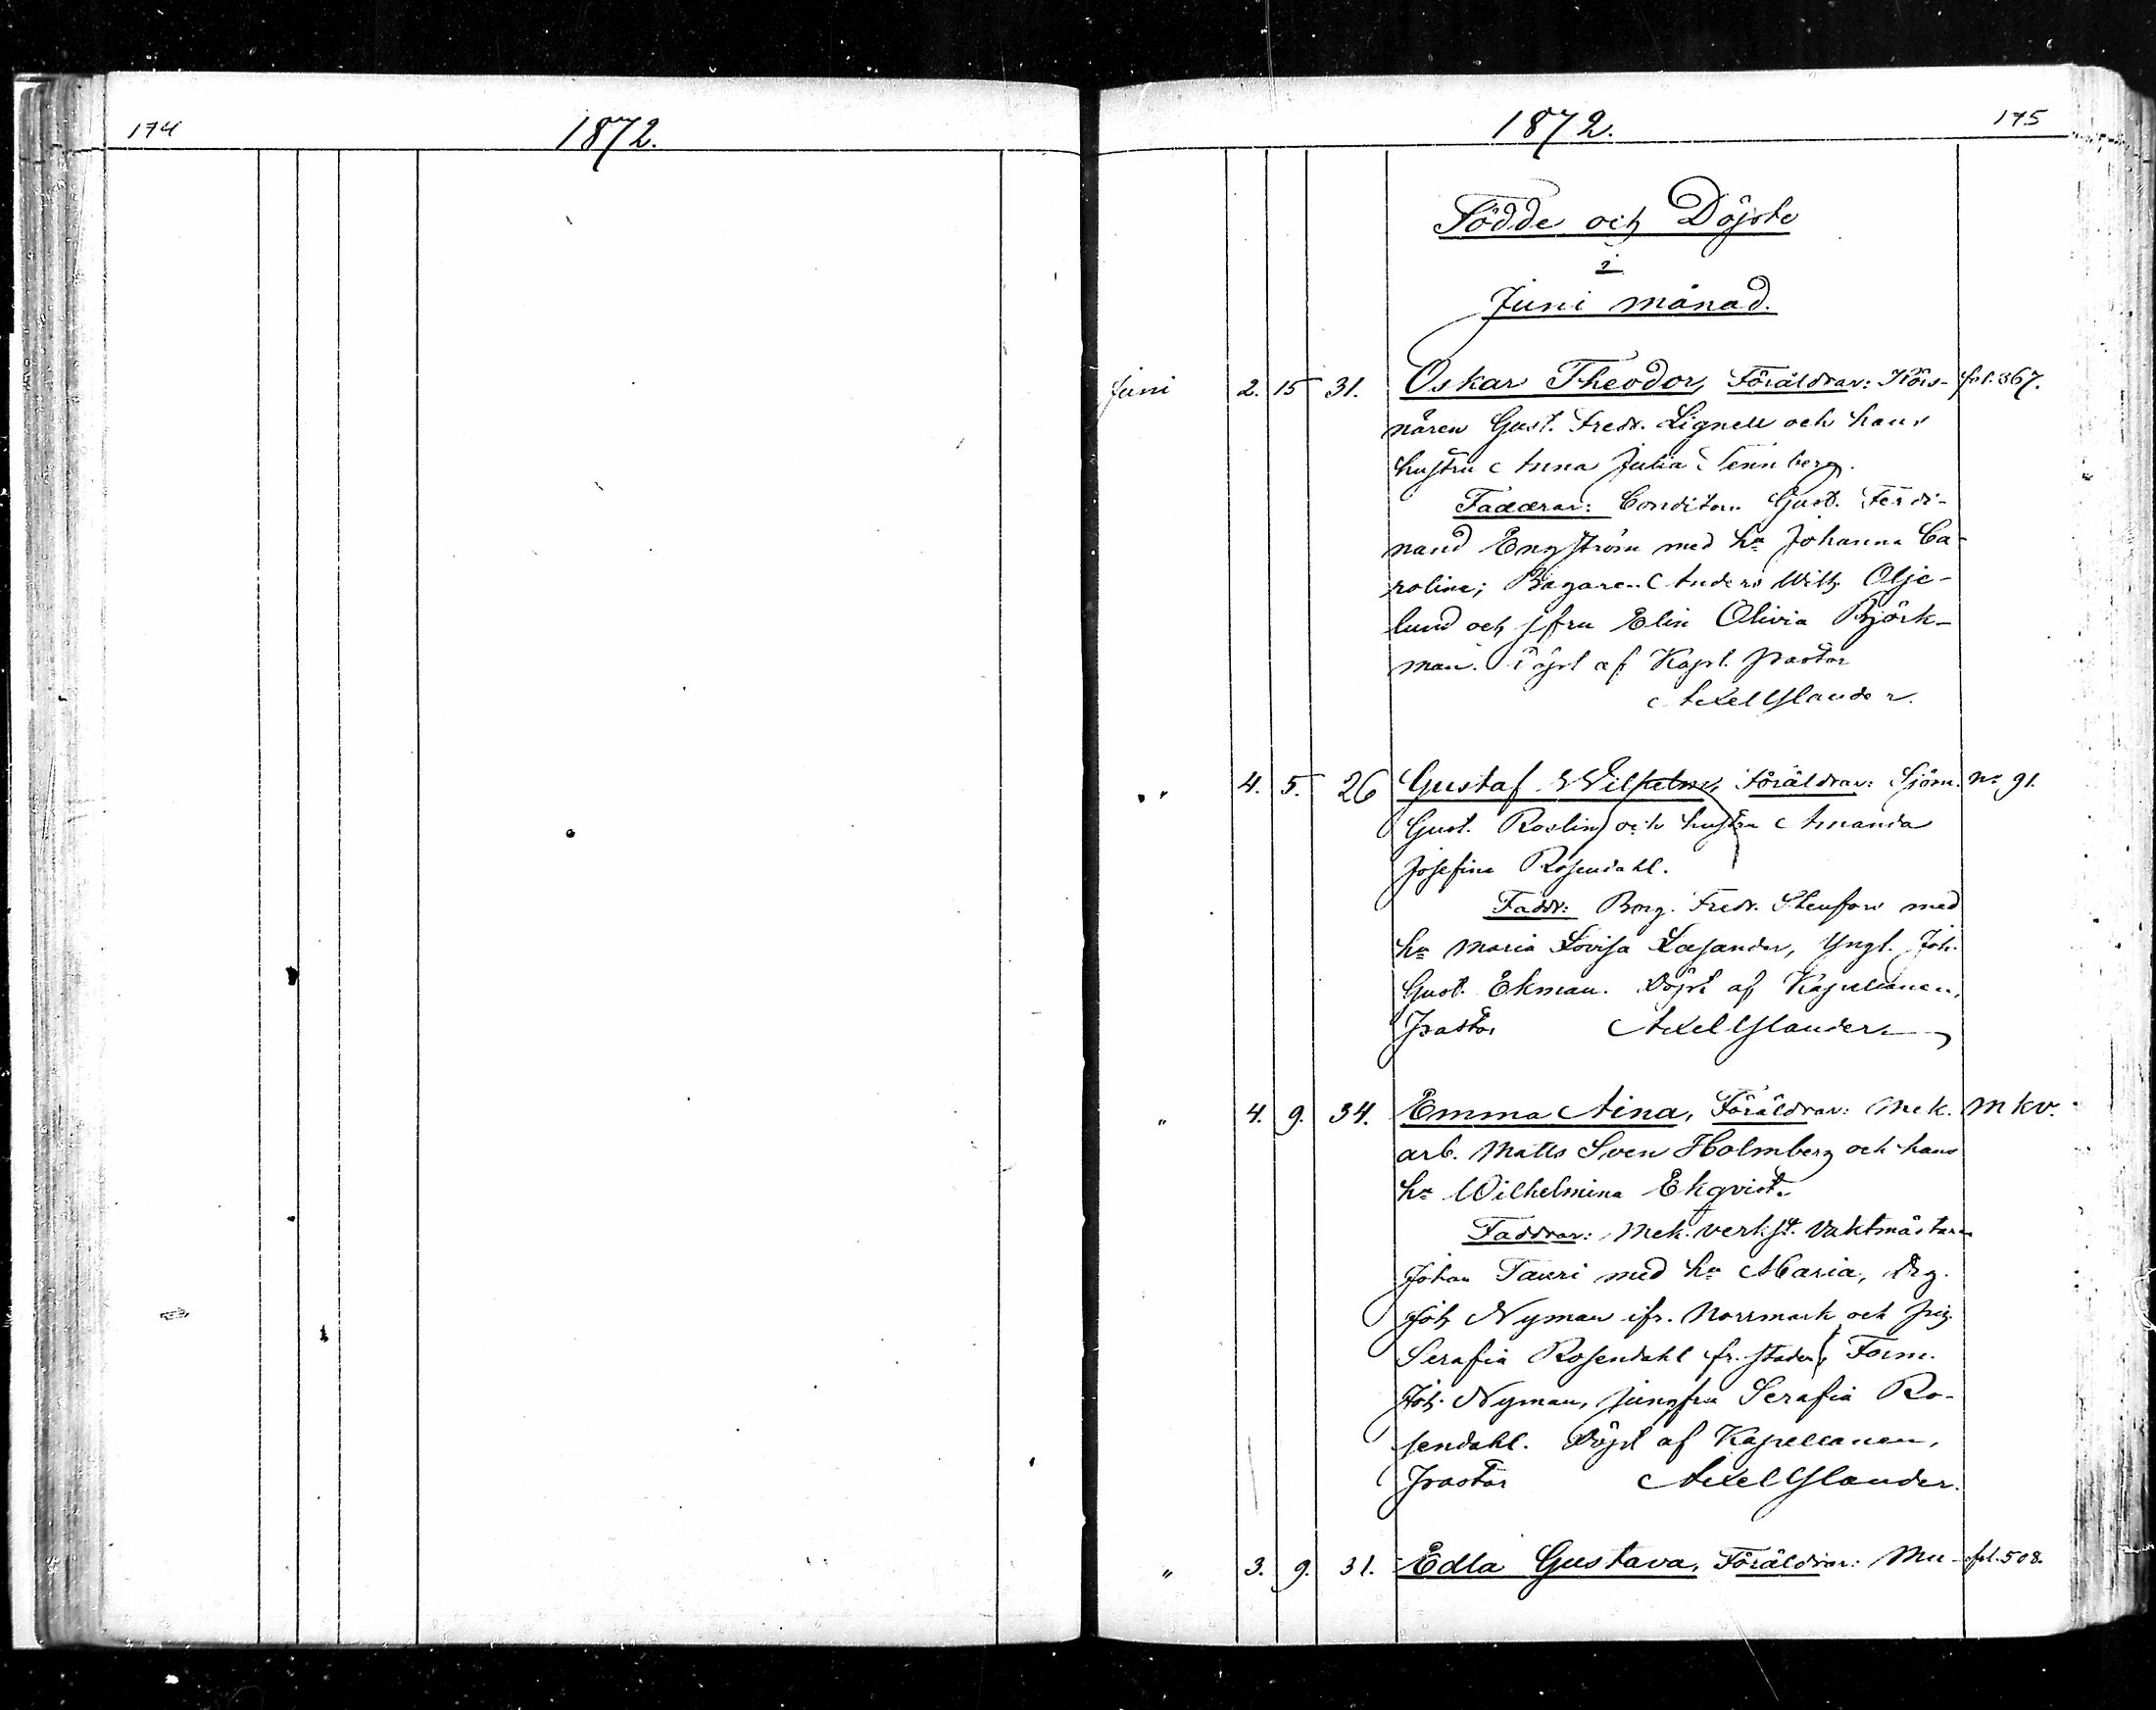 174
1872.
1872.
175
Födde och Döpte
i
Juni månad.
Juni 2. 15 31. Oskar Theodor, Föräldrar: Körs- fol. 367.
nären Gust. Fredr. Lignell och hans
hustru Anna Julia Tennberg.
Faddrar: Conditorn Gust. Ferdi-
nand Engström med hu Johanna Ca-
rolina; Bagaren Anders Wilh. Olje-
lund och jfru Elin Olivia Björk-
man. Döpt af Kapl. pastor
Axel Glander.
" 4. 5. 26 Gustaf Wilhelm, Föräldrar: Sjöm. No 91.
Gust. Roslin och hustru Amanda
Josefina Rosendahl.
Faddr: Borg. Fredr. Stenfors med
hu Maria Lovisa Lasander, Yngl. Joh.
Gust. Ekman. Döpt af Kapellanen,
Pastor Axel Glander
" 4. 9. 34. Emma Aina, Föräldrar: Mek. Mkv.
arb. Matts Sven Holmberg och hans
hu Wilhelmina Ekqvist.
Faddrar: Mek. verkst. Vaktmästaren
Johan Tauri med hu Maria, Drg.
Joh Nyman ifr. Norrmark och
Serafia Rosendahl fr. staden, Form.
Joh. Nyman, jungfru Serafia Ro-
sendahl. Döpt af Kapellanen,
Pastor Axel Glander.
" 3. 9. 31. Edla Gustava, Föräldrar: Mu- fol. 508.